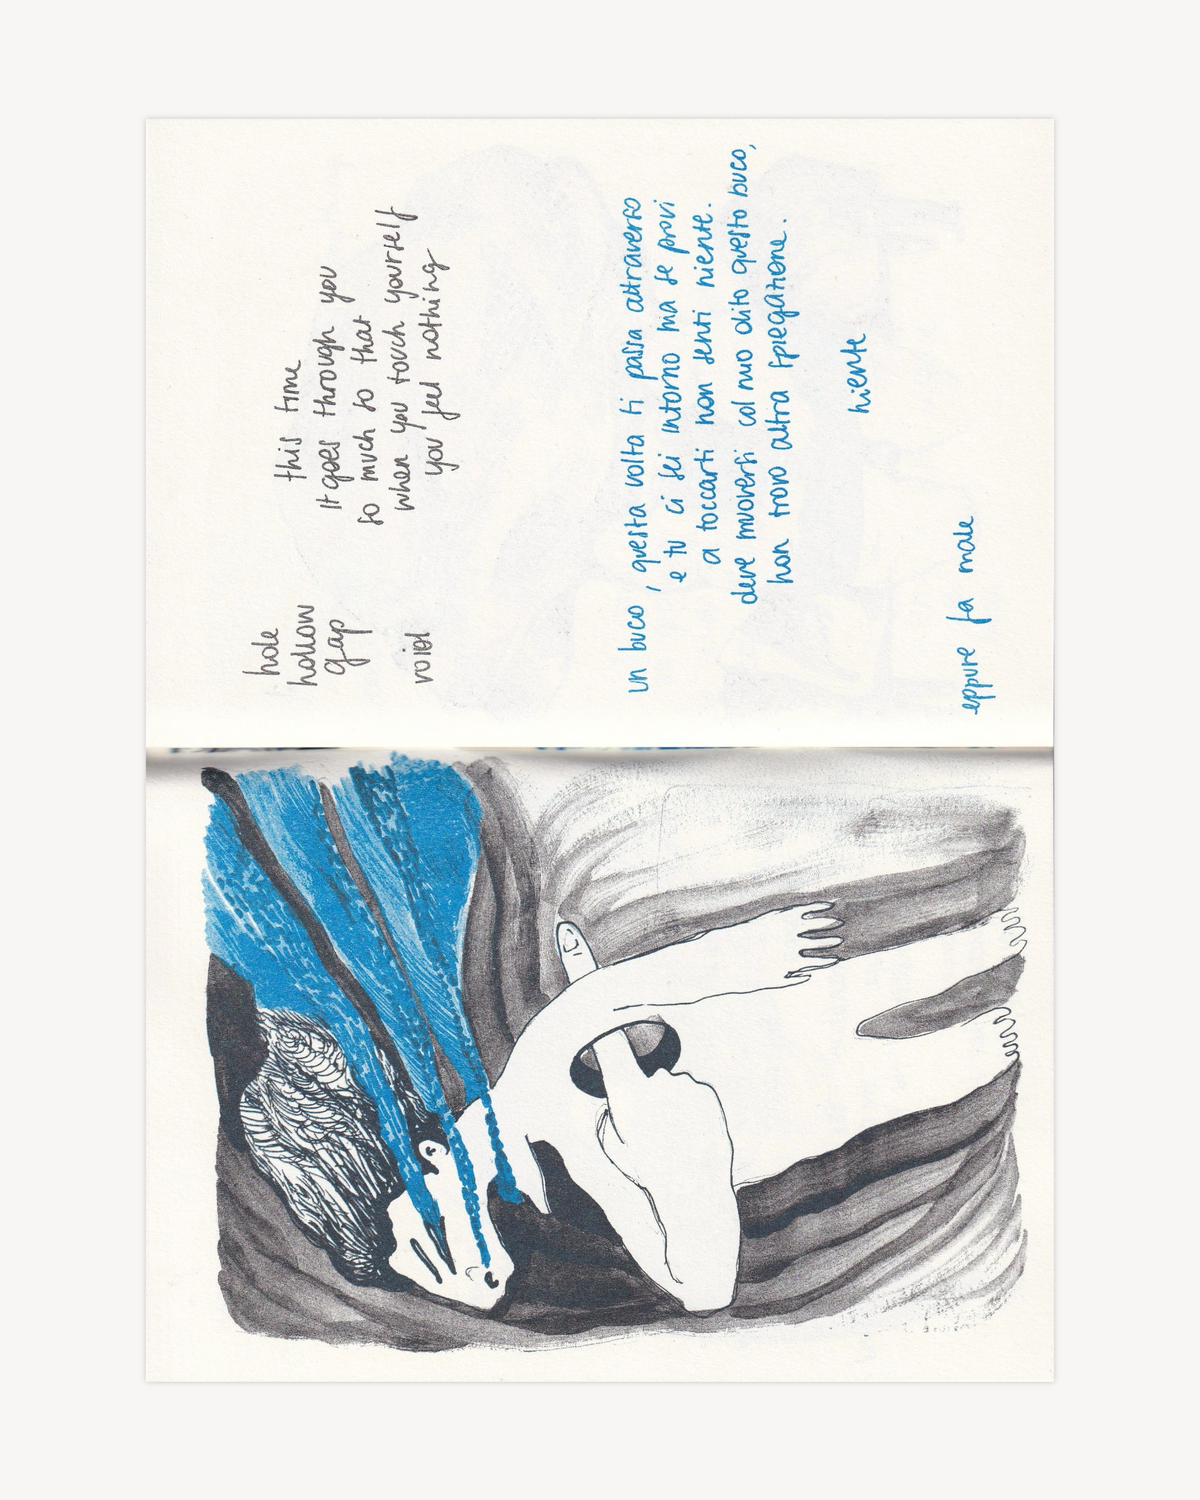 hole
hollow
gap
void
this time
it goes through you
so much so that
when you touch yourself
you feel nothing
un buco, questa volta ti passa attraverso
e tu ci sei intorno ma se provi
a toccarti non senti niente.
deve muoversi col mio dito questo buco,
non trovo altra spiegazione.
niente
eppure fa male